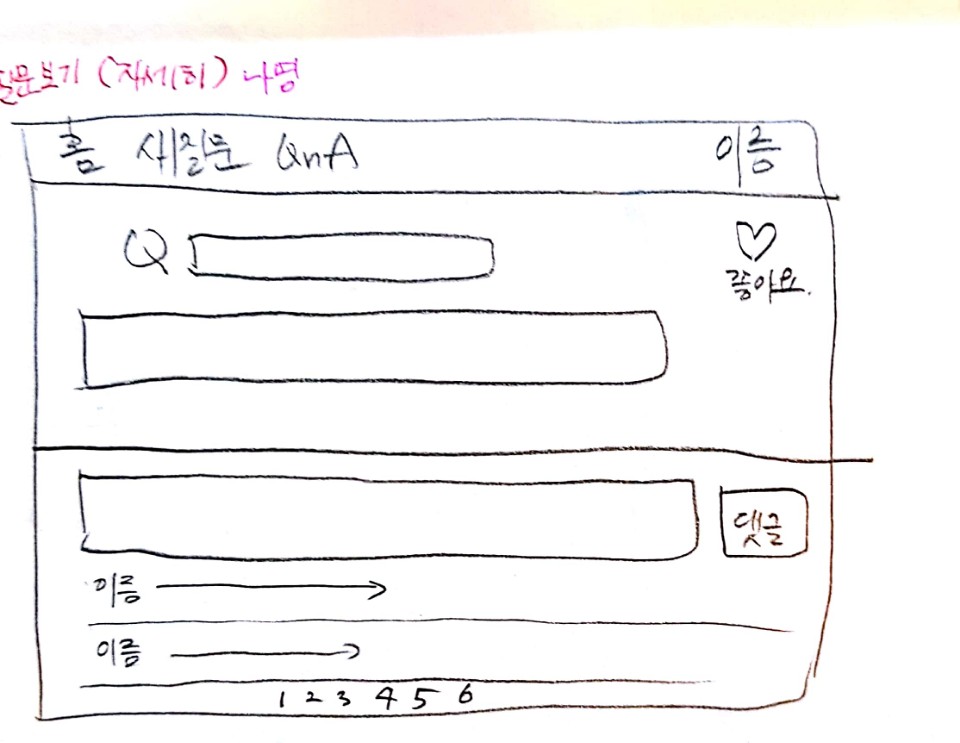 질문보기 (자세히) 나영
홈 새질문 QnA 이름
Q
좋아요.
댓글
이름
이름
1 2 3 4 5 6